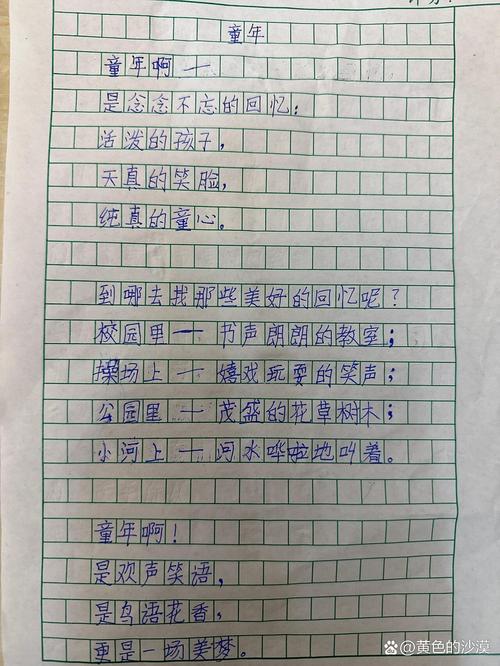 童年
童年啊——
是念念不忘的回忆：
活泼的孩子，
天真的笑脸，
纯真的童心。
到哪去找那些美好的回忆呢？
校园里——书声朗朗的教室；
操场上——嬉戏玩耍的笑声；
公园里——茂盛的花草树木；
小河上——河水哗啦地叫着。
童年啊！
是欢声笑语，
是鸟语花香，
更是一场美梦。
@黄色的沙漠